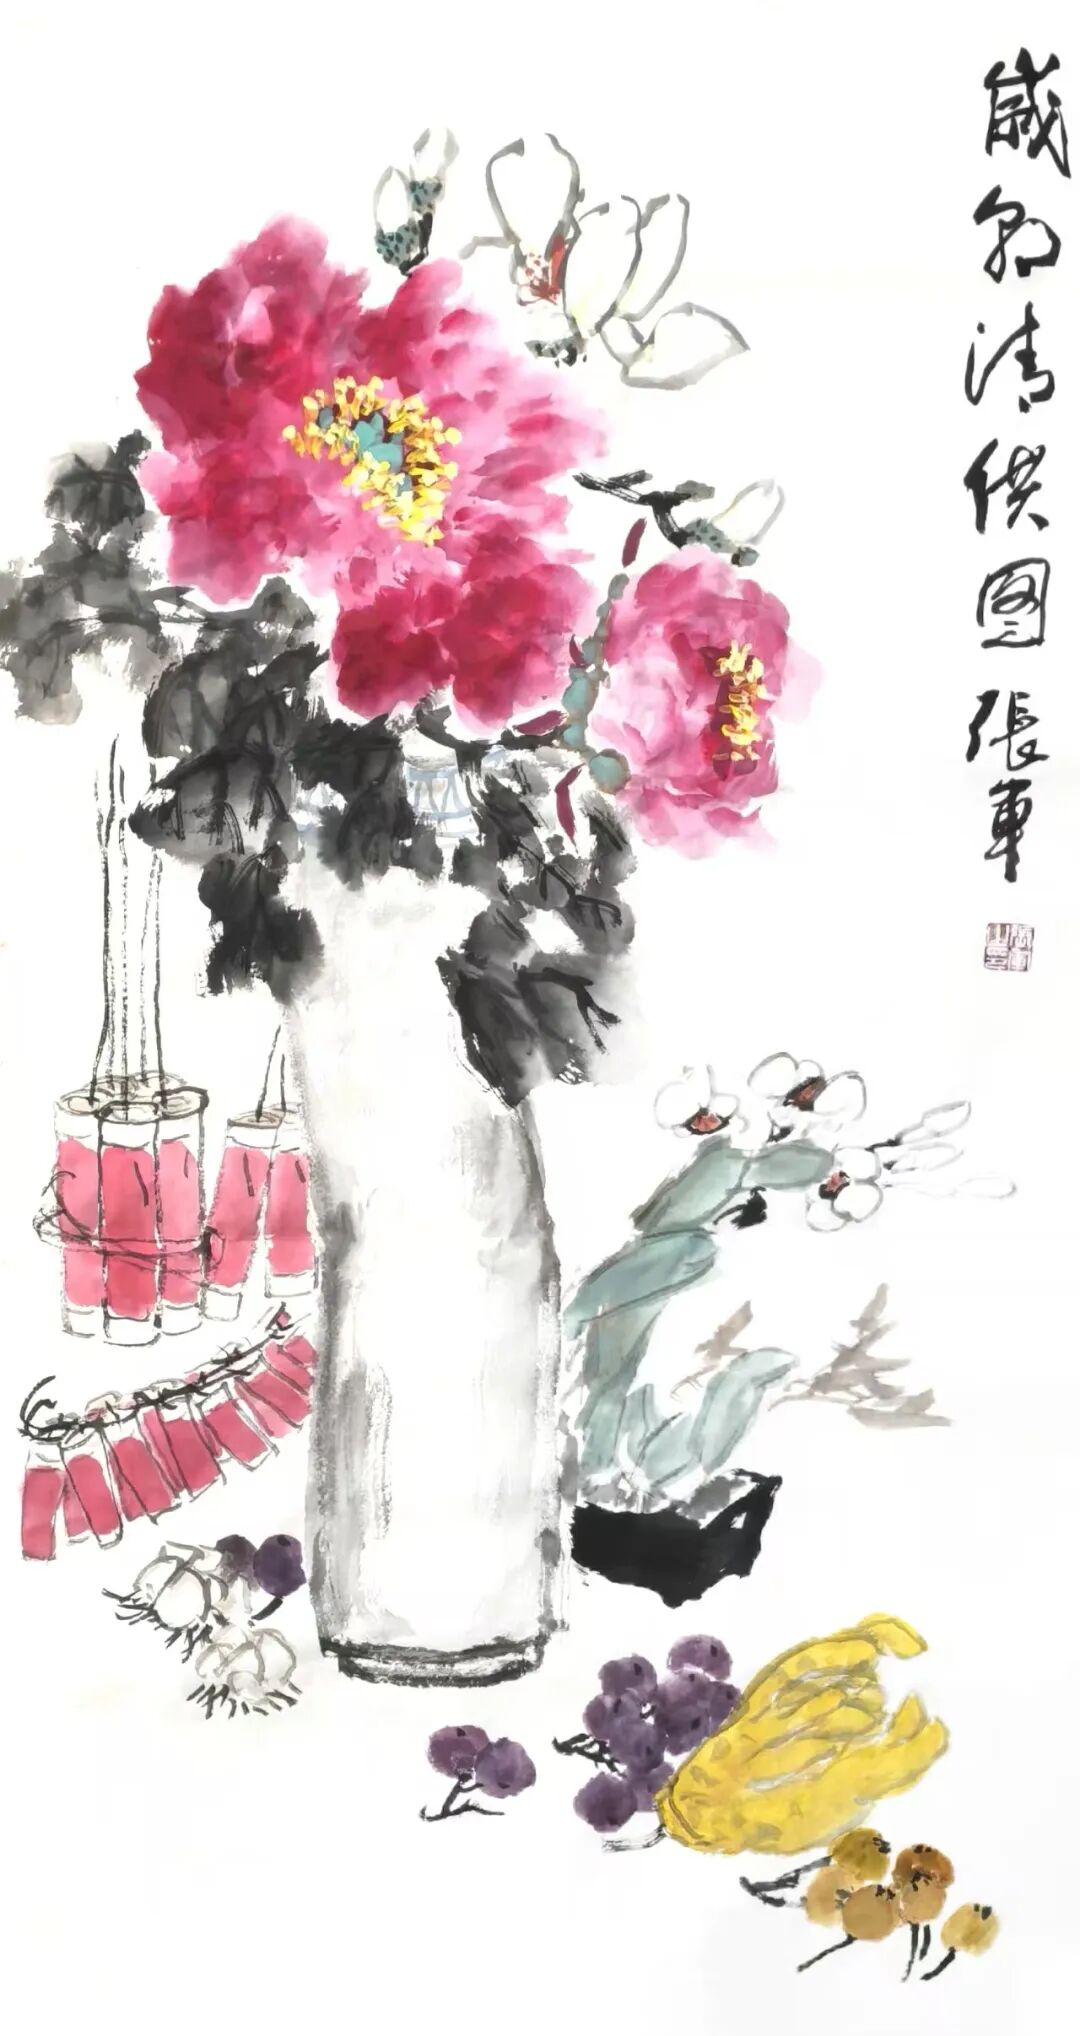 歲朝清供图 張軍